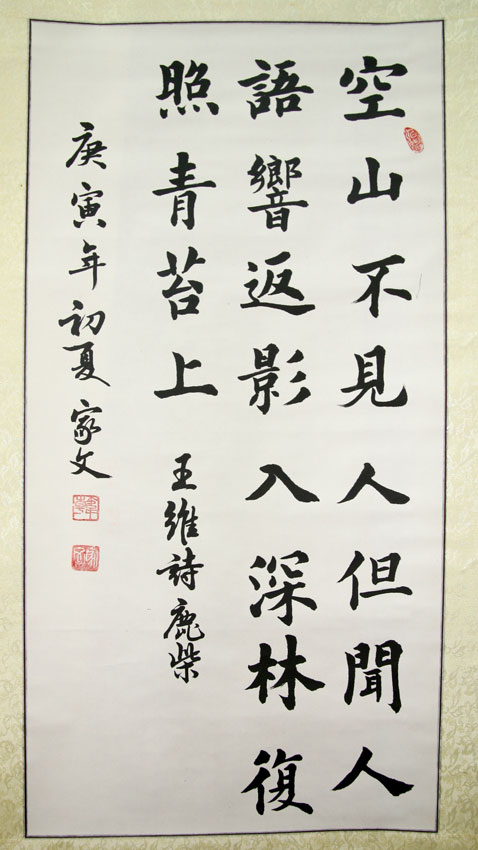 空山不見人但聞人
語響返影入深林復
照青苔上
王維詩鹿柴
庚寅年初夏家文